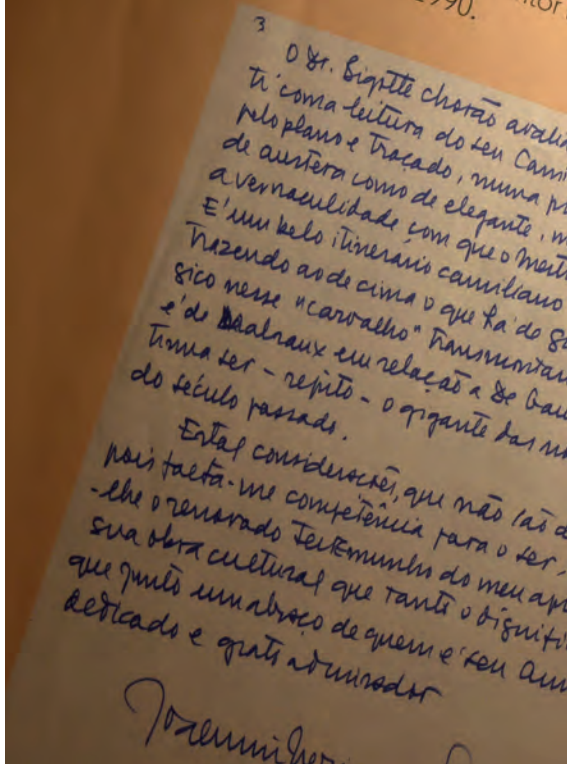 ntor
1990.
3
O Dr. Bigotte Chorão avalia
ti com a leitura do seu Cami
pelo plano e traçado, numa p
de austera como de elegante, m
a vernaculidade com que o Mest
E' um belo itinerário camiliano
trazendo ao de cima o que há de
gico nesse "carvalho" transmontan
é de Malraux em relação a De Gau
tinua ser - repito - o gigante das
do século passado.
Estas considerações, que não são
pois falta-me competência para o ser,
-lhe o renovado testemunho do meu apr
sua obra cultural que tanto o dignifi
que junto um abraço de quem é seu am
dedicado e grato admirador